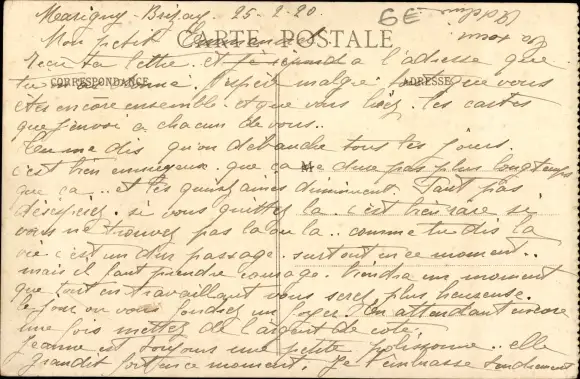 Marigny-Brizay. 25-2-20.
6€
Mon petit
CARTE POSTALE
reçu ta lettre. et je réponds a l'adresse que
CORRESPONDANCE
ADRESSE
tu m'as donné. J'espère malgré que vous
êtes encore ensemble. et que vous lisez les cartes
que j'envoi a chacun de vous..
Tu me dis qu'on débauche tous les jours.
c'est bien ennuyeux. que ça ne dure pas plus longtemps
que ça.. et les quinzaines diminuent. Faut pas
désespérer. si vous quittez la.. c'est bien rare si
vous ne trouvez pas la ou la.. comme tu dis la
vie c'est un dur passage. surtout en ce moment..
mais il faut prendre courage. Viendra un moment
que tout en travaillant vous serez plus heureuse.
le jour ou vous fondrez un foyer. En attendant encore
une fois mettez de l'argent de coté.
Jeanne est toujours une petite polissonne.. elle
grandit fort en ce moment. Je t'embrasse tendrement
Ta sœur